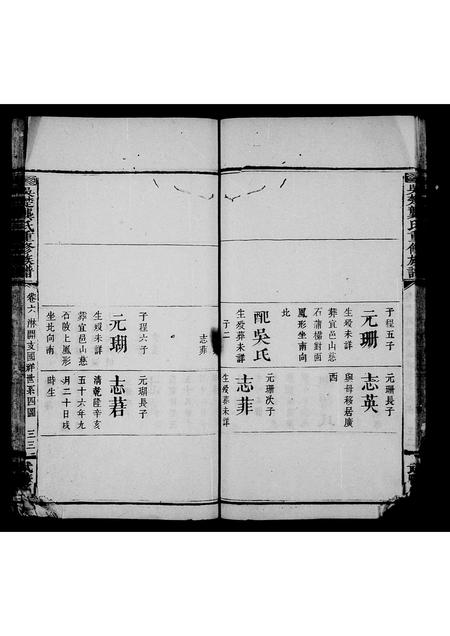 子程五子
元珊
生歿未詳
葬宜邑山慈
石蒲樓對面
鳳形坐南向
北
配吳氏
生歿葬未詳
子二
志英
志菲
元珊長子
志英
與母移居廣
西
元珊次子
志菲
生歿葬未詳
子程六子
元瑚
生歿未詳
葬宜邑山慈
石陂上鳳形
坐北向南
元瑚長子
志莙
清乾隆辛亥
五十六年九
月二十日戌
時生
吳楚龔氏重修族譜
卷六
三三